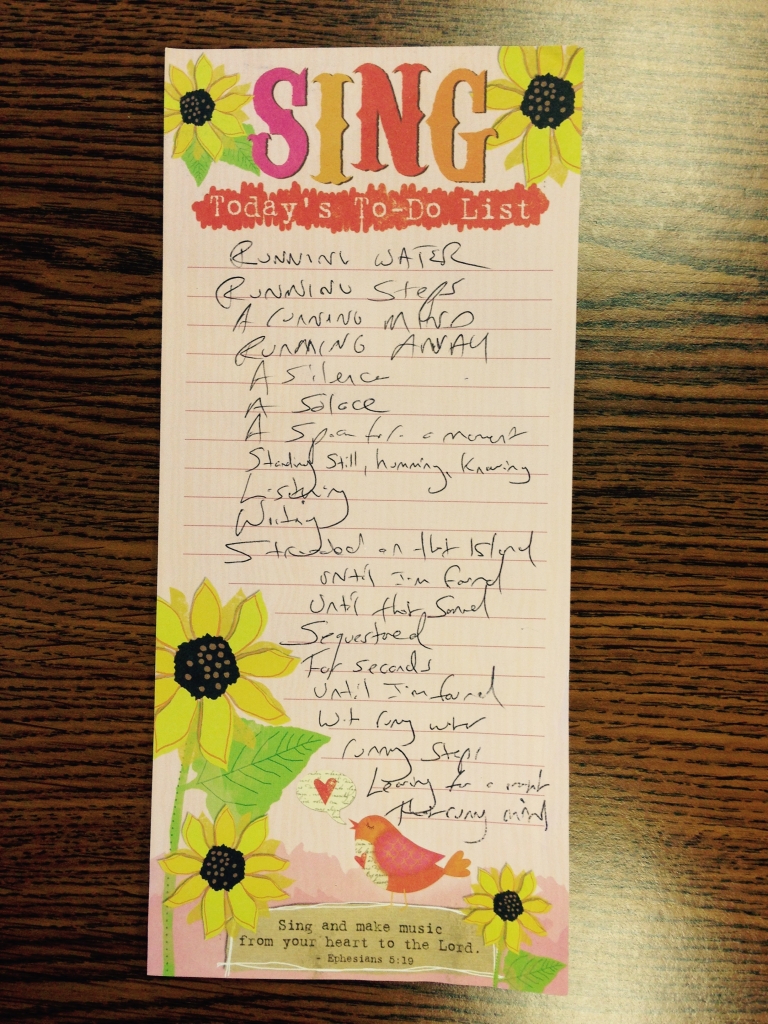 SING
Today's To-Do List
RUNNING WATER
RUNNING Steps
A running MIND
RUNNING AWAY
A Silence
A Solace
A Span for a moment
Standing Still, humming, Knowing
Listening
Writing
Stranded on that Island
until I'm found
Until that Sound
Sequestered
For seconds
Until I'm found
running water
running Steps
Leaving for a moment
that running mind
Sing and make music
from your heart to the Lord.
- Ephesians 5:19